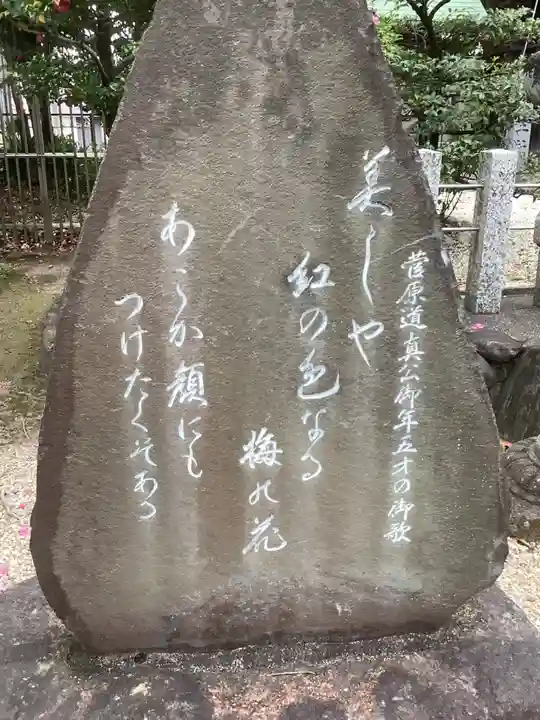 菅原道真公御年五才の御歌
美しや
紅の色なる
梅の花
あこか顔にも
つけたくそある